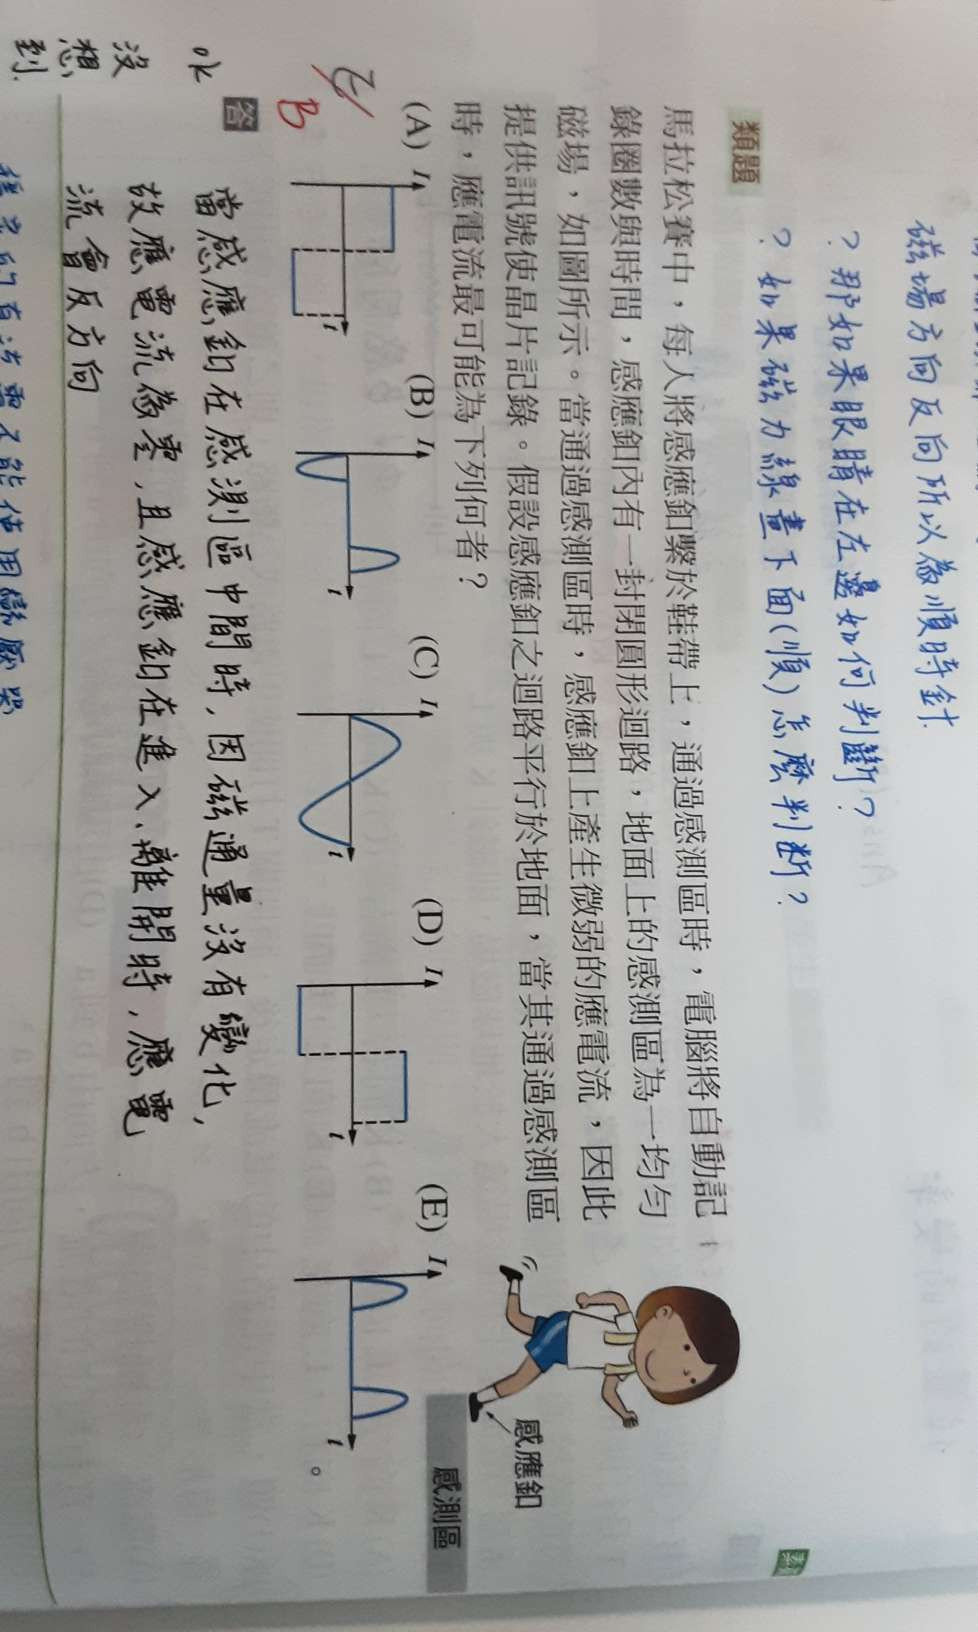 磁場方向反向所以為順時針
? 那如果眼睛在左邊如何判斷?
? 如果磁力線畫下面(順)怎麼判斷?
類題
馬拉松賽中，每人將感應釦繫於鞋帶上，通過感測區時，電腦將自動記
錄圈數與時間，感應釦內有一封閉圓形迴路，地面上的感測區為一均勻
磁場，如圖所示。當通過感測區時，感應釦上產生微弱的應電流，因此
提供訊號使晶片記錄。假設感應釦之迴路平行於地面，當其通過感測區
時，應電流最可能為下列何者？
感應釦
感測區
(A) I t (B) I t (C) I t (D) I t (E) I t 。
B
答
當感應釦在感測區中間時，因磁通量沒有變化，
故應電流為零，且感應釦在進入、離開時，應電
流會反方向
沒
想
到